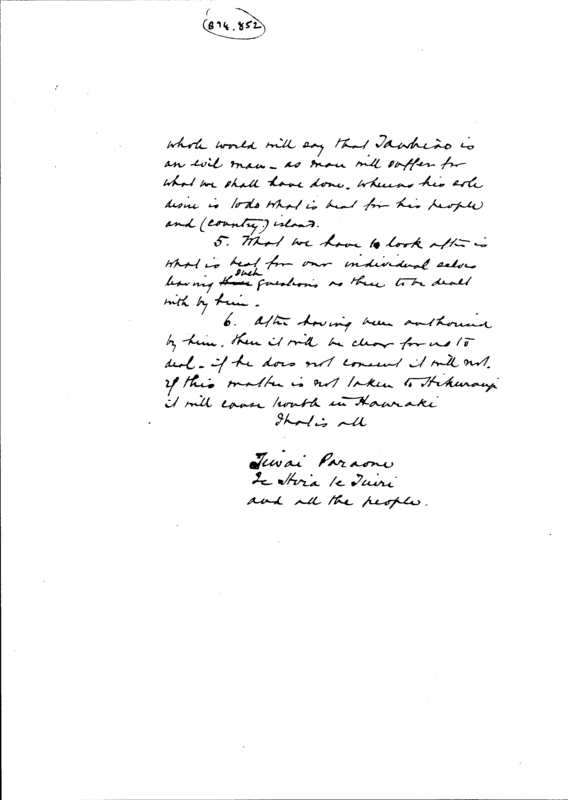 (874.852)
whole world will say that Tawhiao is
an evil man - as man will suffer for
what we shall have done. Whereas his sole
desire is to do what is best for his people
and (country?) island.
5. What we have to look after is
what is best for our individual selves
leaving such questions as these to be dealt
with by him.
6. After having been authorised
by him. then it will be clear for us to
deal - if he does not consent it will not.
If this matter is not taken to Hikurangi
it will cause trouble in Hauraki
That is all
Paraone
Te Hira te Tuiri
and all the people.